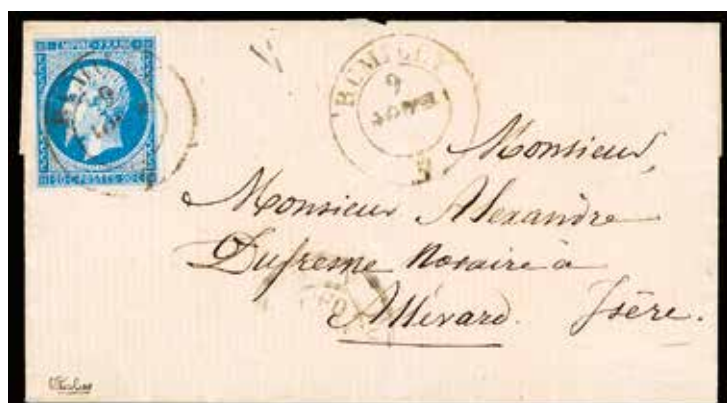 EMPIRE FRANC
20 C. POSTES 20 C.
RUMILLY
9
Monsieur,
Monsieur Alexandre
Dufresne Notaire à
Allevard. Isère.